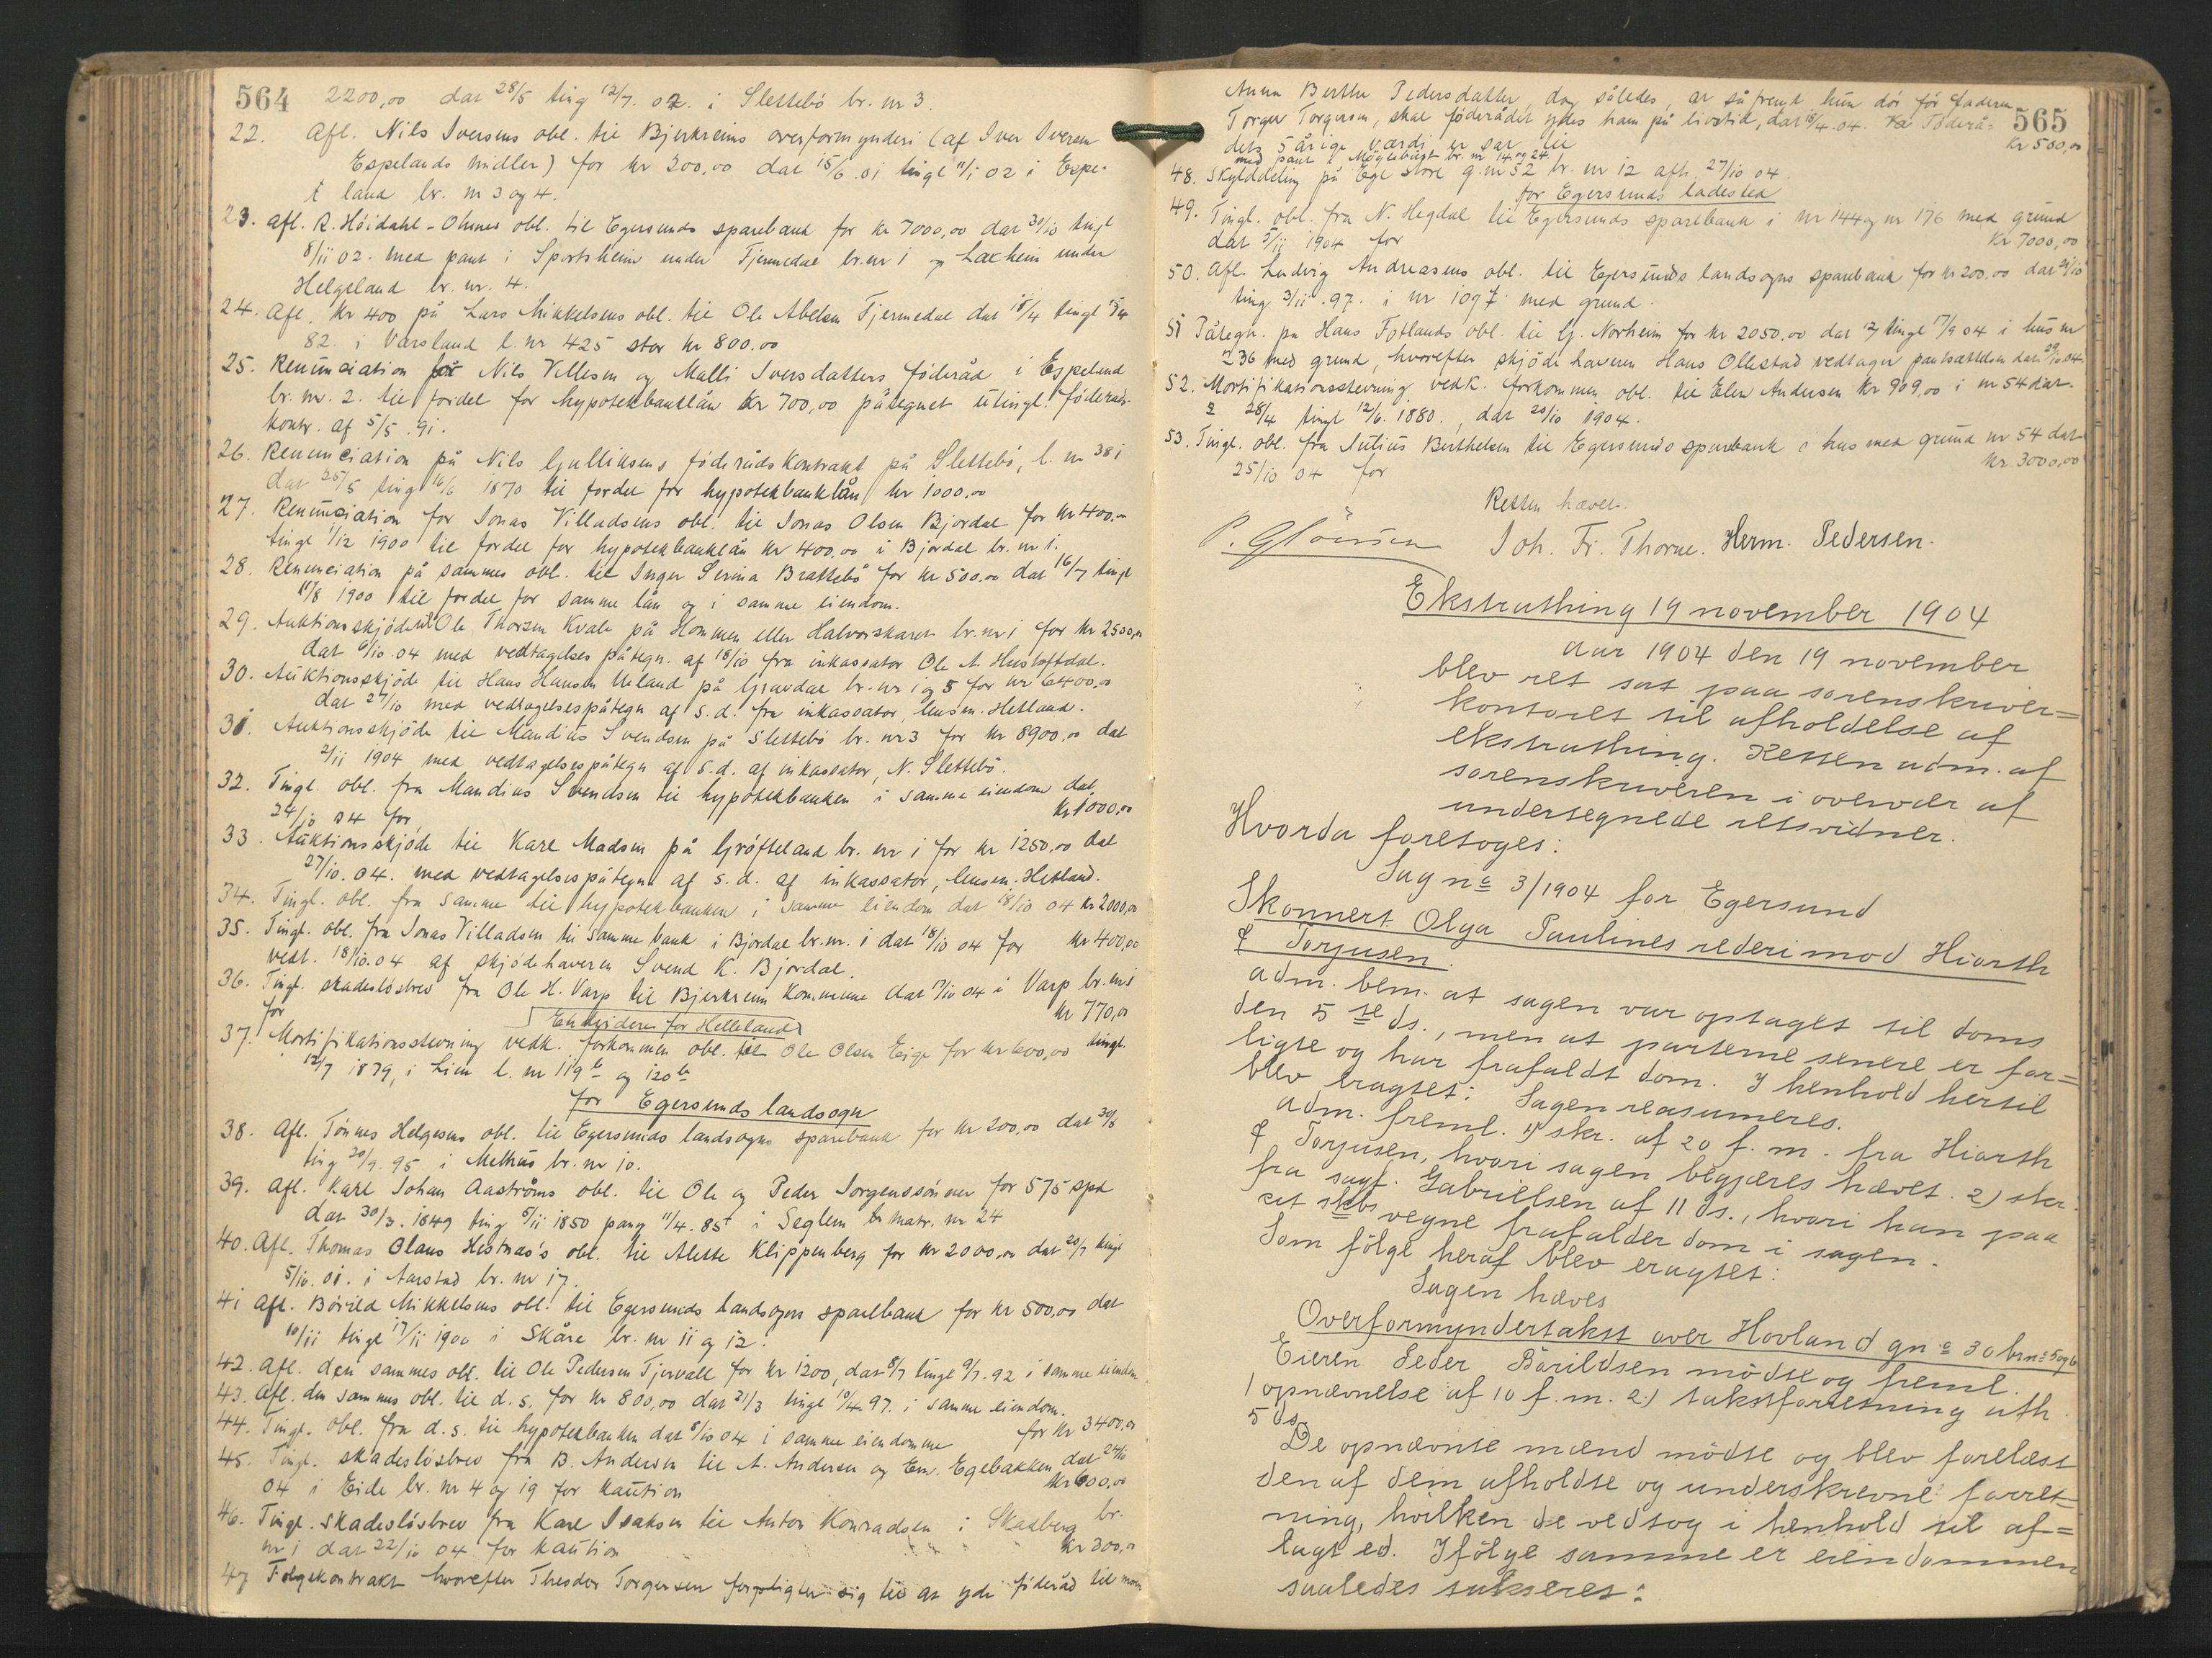 564 2200,00 dat 28/5 ting 12/7. 02. i Slettebö br. nr 3.
22. Afl. Nils Iversens obl. til Bjerkreims overformynderi (af Iver Iversen
Espelands midler) for kr 200,00 dat 15/6 .01 tingl 11/1 02 i Espe-
land br. nr 3 og 4.
23. Afl. R. Höidahl-Ohmes obl. til Egersunds sparebank for kr 7000,00 dat 30/10 tingl
8/11 02. med pant i Sportsheim under Fjermedal br.nr 1 og Laxheim under
Helgeland br. nr. 4.
24. Afl. kr 400 på Lars Mikkelsens obl. til Ole Abelsen Fjermedal dat 18/4 tingl
82. i Varsland l. nr 425 stor kr 800.00
25. Renunciation for Nils Villesen og Malli Iversdatters föderåd i Espeland
br. nr. 2. til fordel for hypotekbanklån kr 700,00 påtegnet utingl. föderåds-
kontr. af 5/5 .91.
26. Renunciation på Nils Gulliksens föderådskontrakt på Slettebö, l. nr 381
dat 25/5 tingl 16/6 1870 til fordel for hypotekbanklån kr 1000.00
27. Renunciation for Jonas Villadsens obl. til Jonas Olsen Bjordal for kr 400.00
tingl 1/12 1900 til fordel for hypotekbanklån kr 400,00 i Bjordal br. nr 1.
28. Renunciation på sammes obl. til Inger Serina Brattebö for kr 500.00 dat 16/7 tingl
17/8 1900 til fordel for samme lån og i samme eiendom.
29. Auktionsskjöde til Ole Thorsen Kvale på Hommen eller Halvorskaret br. nr 1 for kr 2500,00
dat 6/10.04 med vedtagelsespåtegn. af 18/10 fra inkassator Ole A. Hustoftdal.
30. Auktionsskjöde til Hans Hansen Ueland på Gravdal br. nr 1 og 5 for kr 6400,00
dat 27/10 med vedtagelsespåtegn af s.d. fra inkassator, lensm. Hetland.
31. Auktionsskjöde til Mandius Svendsen på Slettebö br. nr 3 for kr 8900,00 dat
2/11 1904 med vedtagelsespåtegn af s.d. af inkassator, N. Slettebö.
32. Tingl. obl. fra Mandius Svendsen til hypotekbanken i samme eiendom dat.
24/10 04 for kr 1000,00
33. Auktionsskjöde til Karl Madsen på Gröfteland br. nr 1 for kr 1250,00 dat
27/10. 04. med vedtagelsespåtegn af s.d. af inkassator, lensm. Hetland.
34. Tingl. obl. fra samme til hypotekbanken i samme eiendom dat 28/10 04 kr 2000,00
35. Tingl. obl. fra Jonas Villadsen til samme bank i Bjordal br. nr. 1 dat 18/10 04 for kr 400,00
vedt. 18/10.04 af skjödehaveren Svend K. Bjordal.
36. Tingl. skadeslösbrev fra Ole H. Varp til Bjerkreim kommune dat 17/10 04 i Varp br. nr 1
for kr 770,00
Endvidere for Helleland
37. Mortifikationsstevning vedk. forkommen obl. til Ole Olsen Eige for kr 600,00 tingl.
12/7 1879, i Lien l. nr 119 b og 120 b
for Egersunds landsogn
38. Afl. Tönnes Helgesens obl. til Egersunds landsogns sparebank for kr 200,00 dat 30/8
ting 20/9. 95 i Melhus br. nr 10.
39. Afl. Karl Johan Aaströms obl. til Ole og Peder Jorgenssönner for 575 spd
dat 30/3. 1849 ting 5/11 1850 pany 11/4. 85 i Seglem matr. nr 24
40. Afl. Thomas Olaus Hestnæs's obl. til Alette Klippenberg for kr 2000,00 dat 20/7 tingl
5/10. 01. i Aarstad br. nr 17.
41 Afl. Börild Mikkelsens obl. til Egersunds landsogns sparebank for kr 500,00 dat
10/11 tingl 17/11 1900 i Skåre br. nr 11 og 12.
42. Afl. den sammes obl. til Ole Pedersen Tjervåll for kr 1200, dat 8/7 tingl 9/7. 92 i samme eiendom
43. Afl. den sammes obl. til d.s. for kr 800,00 dat 31/3 tingl 10/4. 97. i samme eiendom.
44. Tingl. obl. fra d.s. til hypotekbanken dat 8/10 04 i samme eiendomme for kr 3400,00
45. Tingl. skadeslösbrev fra B. Andersen til A. Andersen og Em. Egebakken dat 24/10
04 i Eide br. nr 4 og 19 for kaution kr 600,00
46. Tingl. skadeslösbrev fra Karl Isaksen til Anton Konradsen i Skadberg br.
nr 1 dat 22/10 04 for kaution kr 300,00
47 Fölgekontrakt hvorefter Theodor Torgersen forpligter sig til at yde föderåd til mor
Anna Berthe Pedersdatter, dog således, at såfremt hun dör för faderen
Torger Torgersen, skal föderådet ydes ham på livstid, dat 18/4. 04. Föderå- 565
dets 5årige værdi er sat til kr 500,00
med pant i Möglebust br. nr 14 og 24.
48. Skylddeling på Ege store g. nr 52 br. nr 12 afh. 27/10 04.
for Egersunds ladested
49. Tingl. obl. fra N. Hegdal til Egersunds sparebank i nr 144 og nr 176 med grund
dat 5/11 1904 for kr 7000,00
50. Afl. Ludvig Andreasens obl. til Egersunds landsogns sparebank for kr 200.00 dat 21/10
ting 3/11 .97. i nr 1097 med grund.
51 Påtegn. på Hans Fotlands obl. til G. Norheim for kr 2050,00 dat tingl 17/9 04 i hus nr
236 med grund, hvorefter skjödehaveren Hans Ollestad vedtager pantsættelsen dat 29/10 04.
52. Mortifikationsstevning vedk. forkommen obl. til Elen Andersen kr 909,00 i nr 54 dat.
28/4 tingl 12/6. 1880., dat 20/10 1904.
53. Tingl. obl. fra Julius Berthelsen til Egersunds sparebank i hus med grund nr 54 dat
25/10 04 for kr 3000,00
Retten hævet.
Joh. Fr. Thorne. Herm. Pedersen.
Ekstrathing 19 november 1904
Aar 1904 den 19 november
blev ret sat paa sorenskriver=
kontoret til afholdelse af
ekstrathing. Retten adm. af
sorenskriveren i overvær af
undertegnede retsvidner.
Hvorda foretoges:
Sag no 3/1904 for Egersund
Skonnert Olga Paulines rederi mod Hiorth
& Torjusen.
Adm. bem. at sagen var optaget til doms
den 5te ds., men at parterne senere er for=
ligte og har frafaldt dom. I henhold hertil
blev eragtet: Sagen reasumeres.
Adm. freml. 1) skr. af 20 f. m. fra Hiorth
& Torjusen, hvori sagen begjæres hævet. 2) skr.
fra sagf. Gabrielsen af 11 ds., hvori han paa
cit skbs vegne frafalder dom i sagen.
Som fölge heraf blev eragtet:
Sagen hæves
Overformyndertakst over Hovland gno 30 brno 5 og 6
Eieren Peder Bärildsen mödte og freml.
1 opnævnelse af 10 f. m. 2) takstforretning afh.
5 ds.
De opnævnte mænd mödte og blev forelæst
den af dem afholdte og underskrevne forret=
ning, hvilken de vedtog i henhold til af=
lagt ed. Ifölge samme er eiendommen
saaledes takseret: